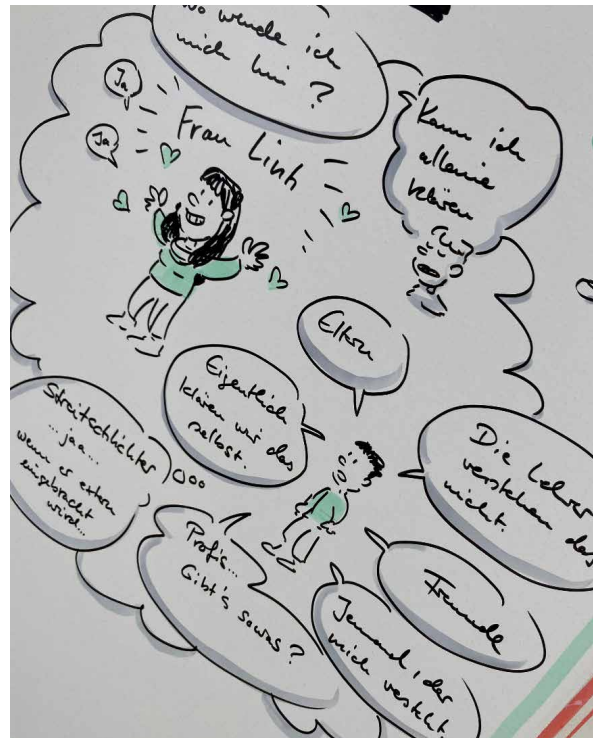 wo wende ich
mich hin ?
Ja
Ja
Frau Linh
Kann ich
alleine
klären
Eltern
Eigentlich
klären wir das
selbst.
Streitschlichter
...jaa...
wenn er extern
eingebracht
wird...
Die Lehrer
verstehen das
nicht.
Profis...
Gibt's sowas ?
Freunde
Jemand, der
mich versteht.